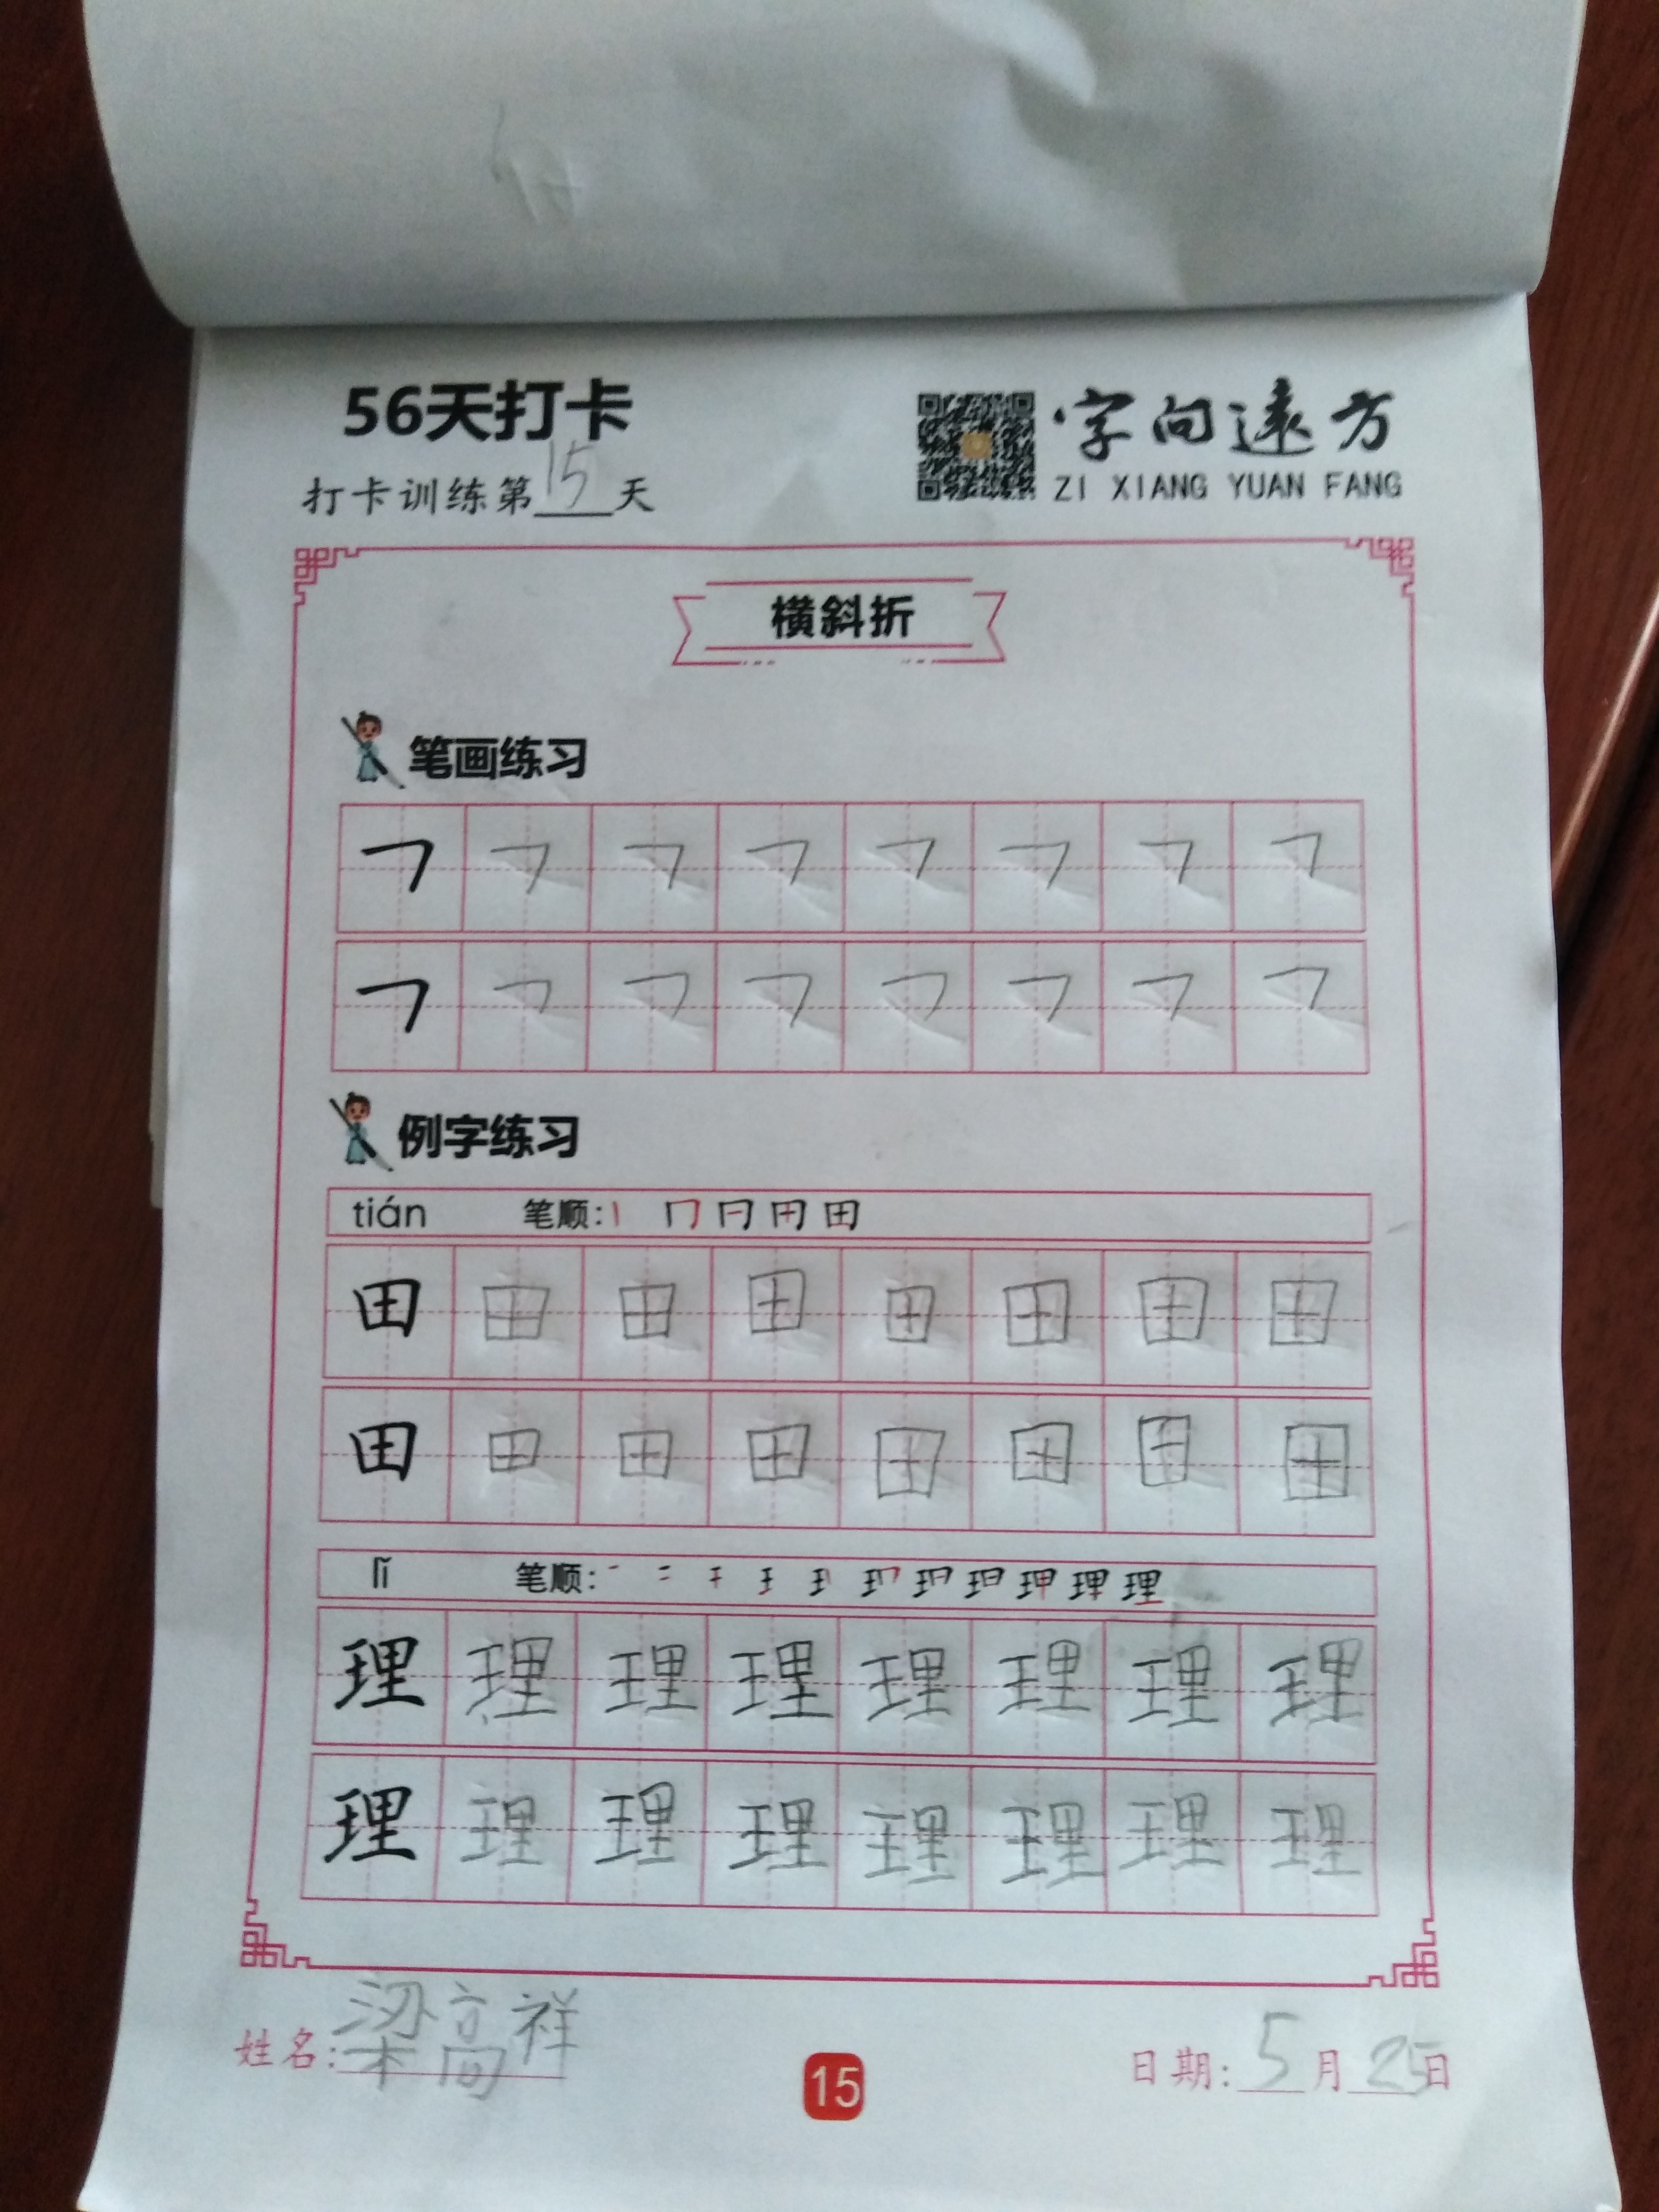 56天打卡
字向远方
打卡训练第15天
ZI XIANG YUAN FANG
横斜折
笔画练习
例字练习
tián 笔顺: 丨 冂 日 田 田
田 田 田 田 田 田 田 田
田 田 田 田 田 田 日 田
lǐ 笔顺: 理
理 理 理 理 理 理 理 理
理 理 理 理 理 理 理 理
姓名:梁高祥
15
日期:5月25日